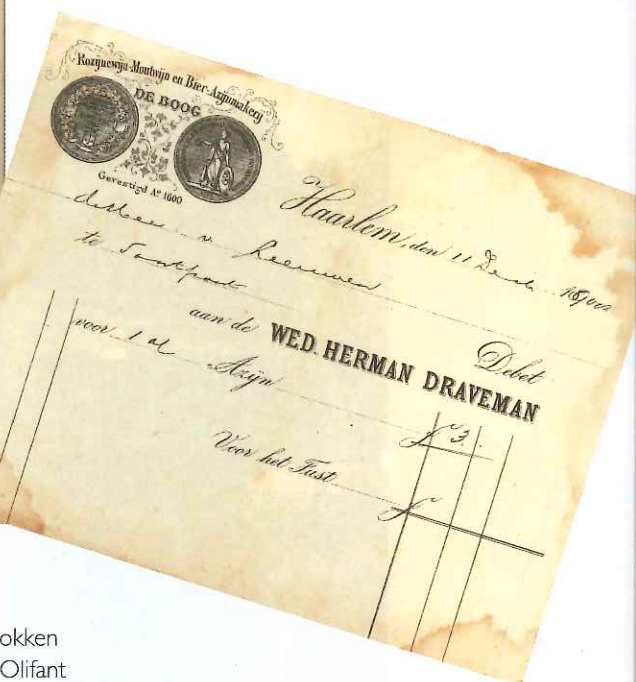 Rozijnewijn-Moutwijn en Bier-Azijnmakerij
DE BOOG
Gevestigd Aº 1600
Haarlem, den 11 Dec
v. Leeuwen
te Santpoort
Debet
aan de WED. HERMAN DRAVEMAN
voor 1 Azijn f 3.
Voor het Fust f
okken
Olifant